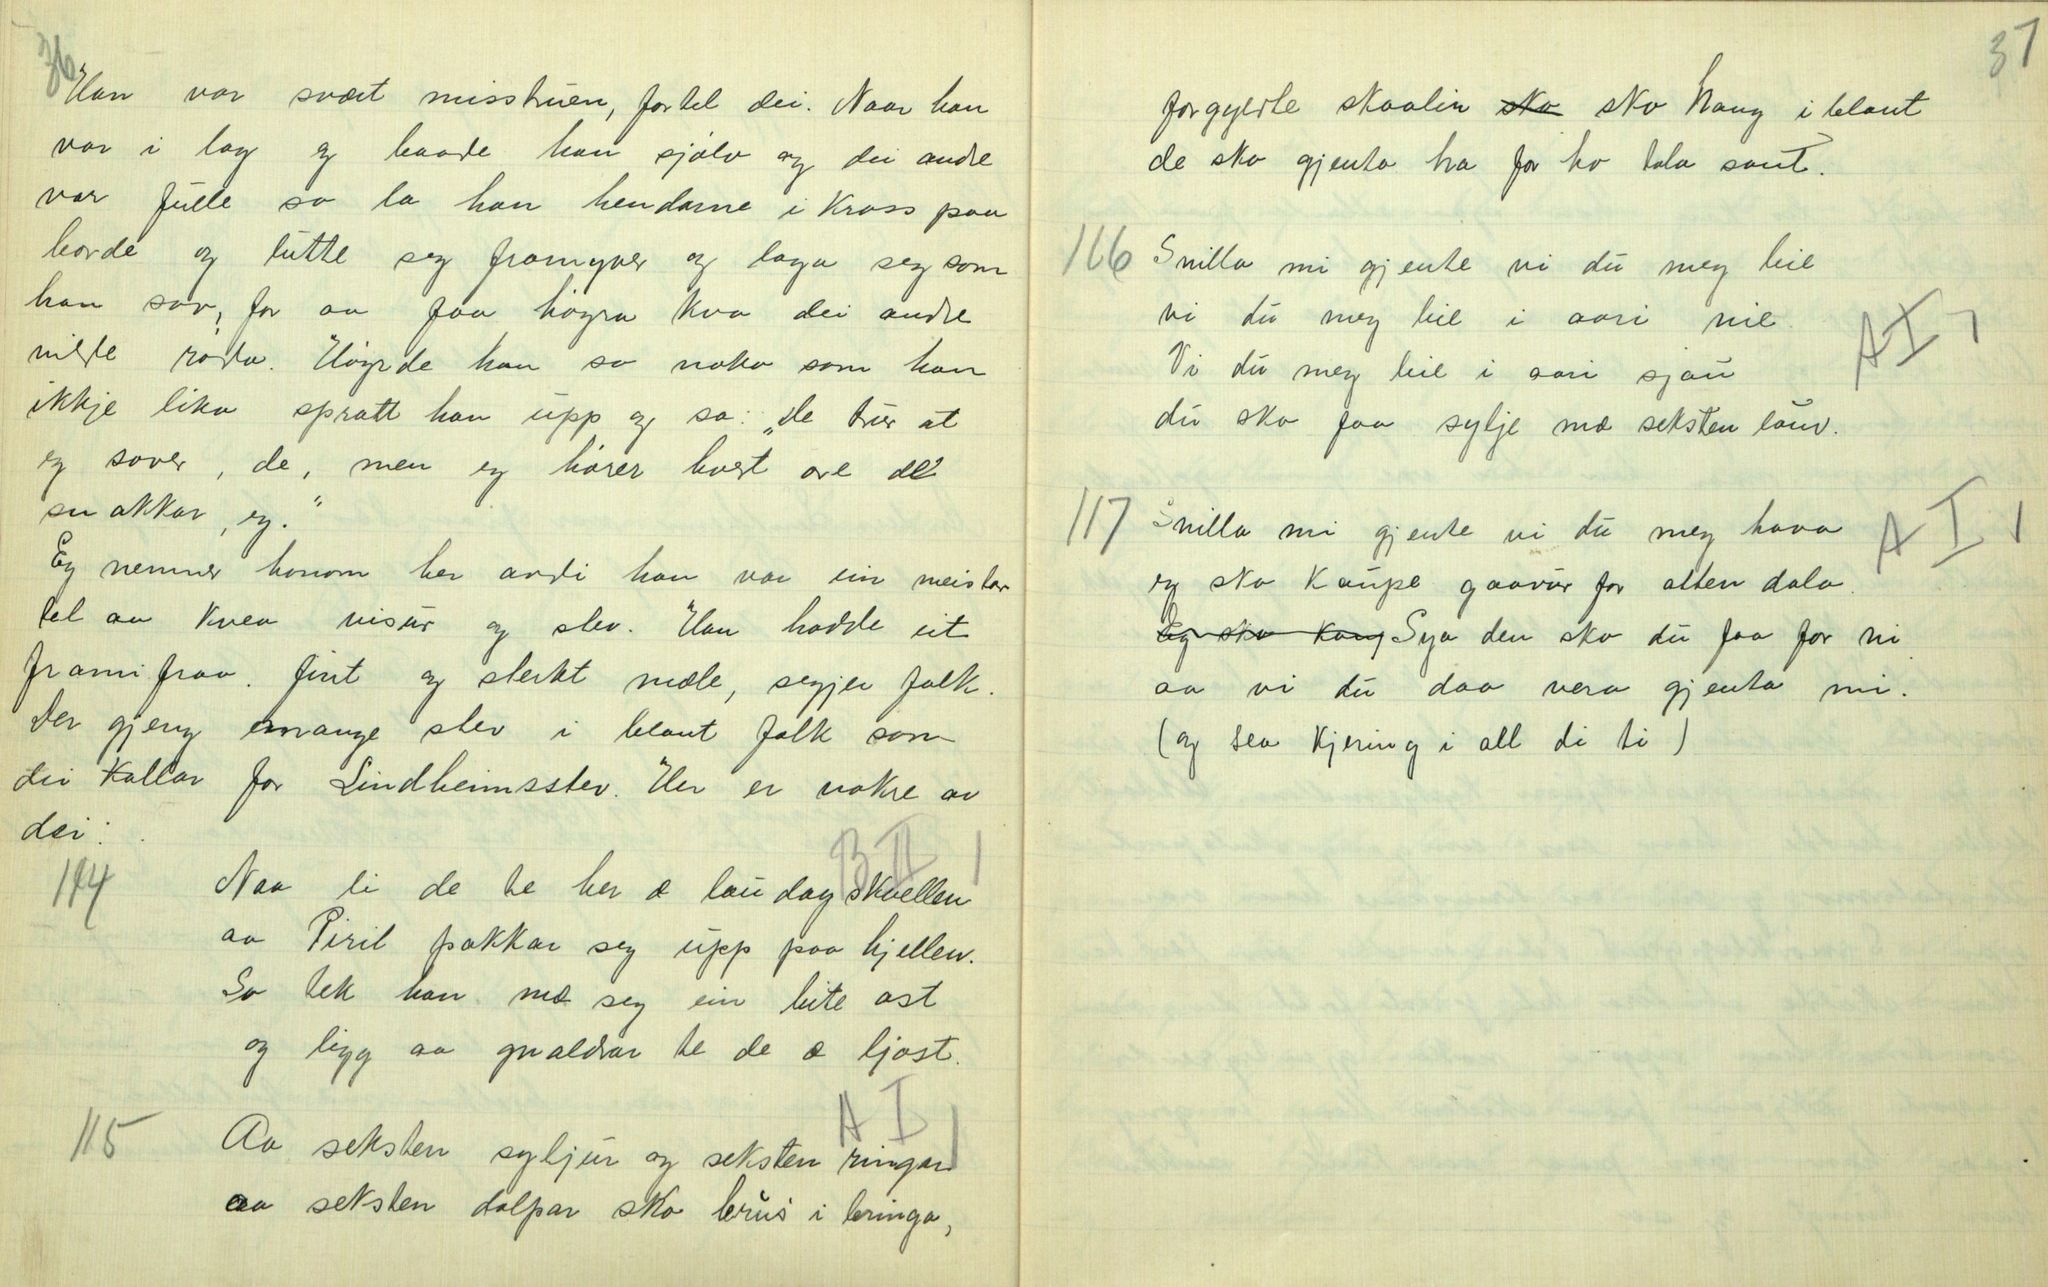 36
Han var svært misstruen, fortel dei. Naar han
var i lag og baade han sjølv og dei andre
var fulle so la han hendarne i kross paa
borde og lutte seg framyver og laga seg som
han sov, for aa faa høgra kva dei andre
vilde røda. Høyrde han so noko som han
ikkje lika spratt han upp og sa: „de trur at
eg sover, de, men eg hører hvert ore de
snakkar, eg.“
Eg nemner honom her avdi han var ein meister
tel aa kvea visur og stev. Han hadde eit
framifraa fint og sterkt mæle, segjer folk.
Der gjeng mange stev i blant folk som
dei kallar for Lindheimsstev. Her er nokre av
dei:
114 B II 1
Naa li de te her æ laudagskvellen
aa Piril pakkar seg upp paa hjellen.
So tek han mæ seg ein bite ost
og ligg aa gnaldrar te de æ ljost.
115 A I 1
Aa seksten syljur og seksten ringar
aa seksten dolpar ska brus i bringa,
37
forgyldte skaalin ska ska hang iblant
de ska gjenta ha for ho tala sant.
116 Snilla mi gjente vi du meg bie
vi du meg bie i aari nie
A I 1
Vi du meg bie i aari sjau
du ska faa sylje mæ seksten lauv.
117 Snilla mi gjente vi du meg hava A I 1
eg ska kaupe gaavur for atten dala.
Eg ska kaup Sya den ska du faa for ni
aa vi du daa vera gjenta mi.
(og sea kjering i all di ti)